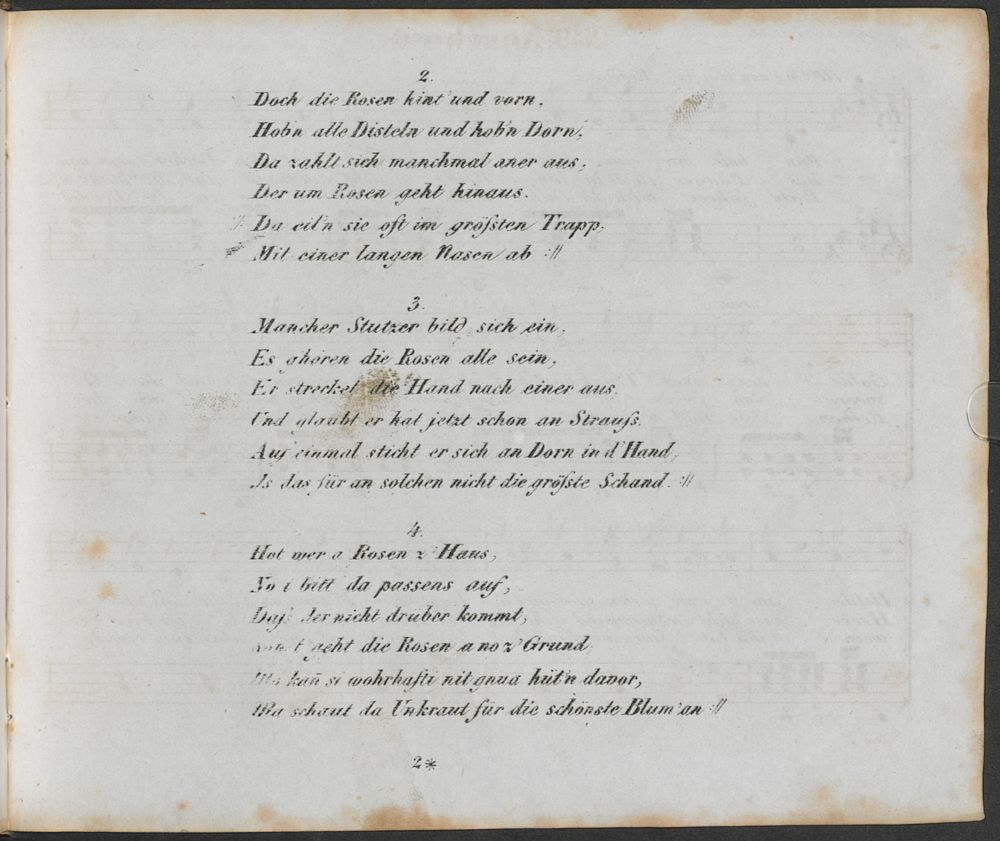 2.
Doch die Rosen hint' und vorn,
Hob'n alle Disteln und hob'n Dorn'.
Da zahlt sich manchmal aner aus,
Der um Rosen geht hinaus.
:// Da eil'n sie oft im größten Trapp,
Mit einer langen Nasen ab ://
3.
Mancher Stutzer bild sich ein,
Es ghören die Rosen alle sein,
Er strecket die Hand nach einer aus.
Und glaubt er hat jetzt schon an Strauß.
Auf einmal sticht er sich an Dorn in d'Hand,
Is das für an solchen nicht die größte Schand ://
4.
Hot wer a Rosen z'Haus,
No i bitt da passens auf,
Daß der nicht drüber kommt,
geht die Rosen a no z'Grund
Ma kañ si wohrhafti nit gnua hüt'n davor,
Ma schaut da Unkraut für die schönste Blum' an ://
2*